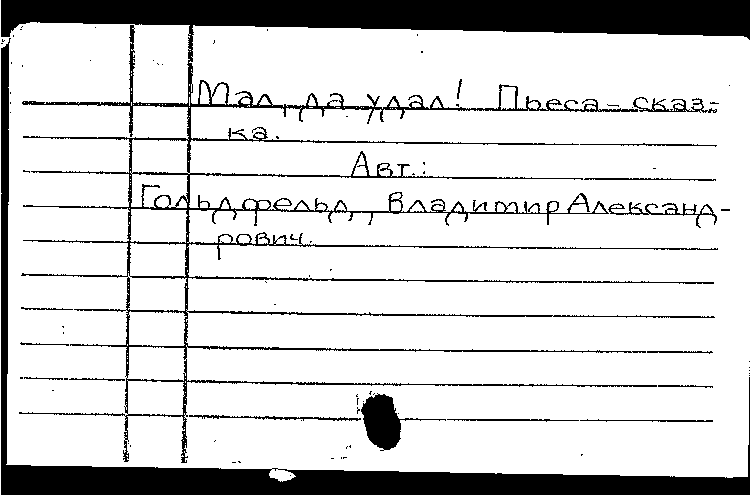 Мал, да удал! Пьеса-сказ-
ка.
Авт.:
Гольдфельд, Владимир Александ-
рович.